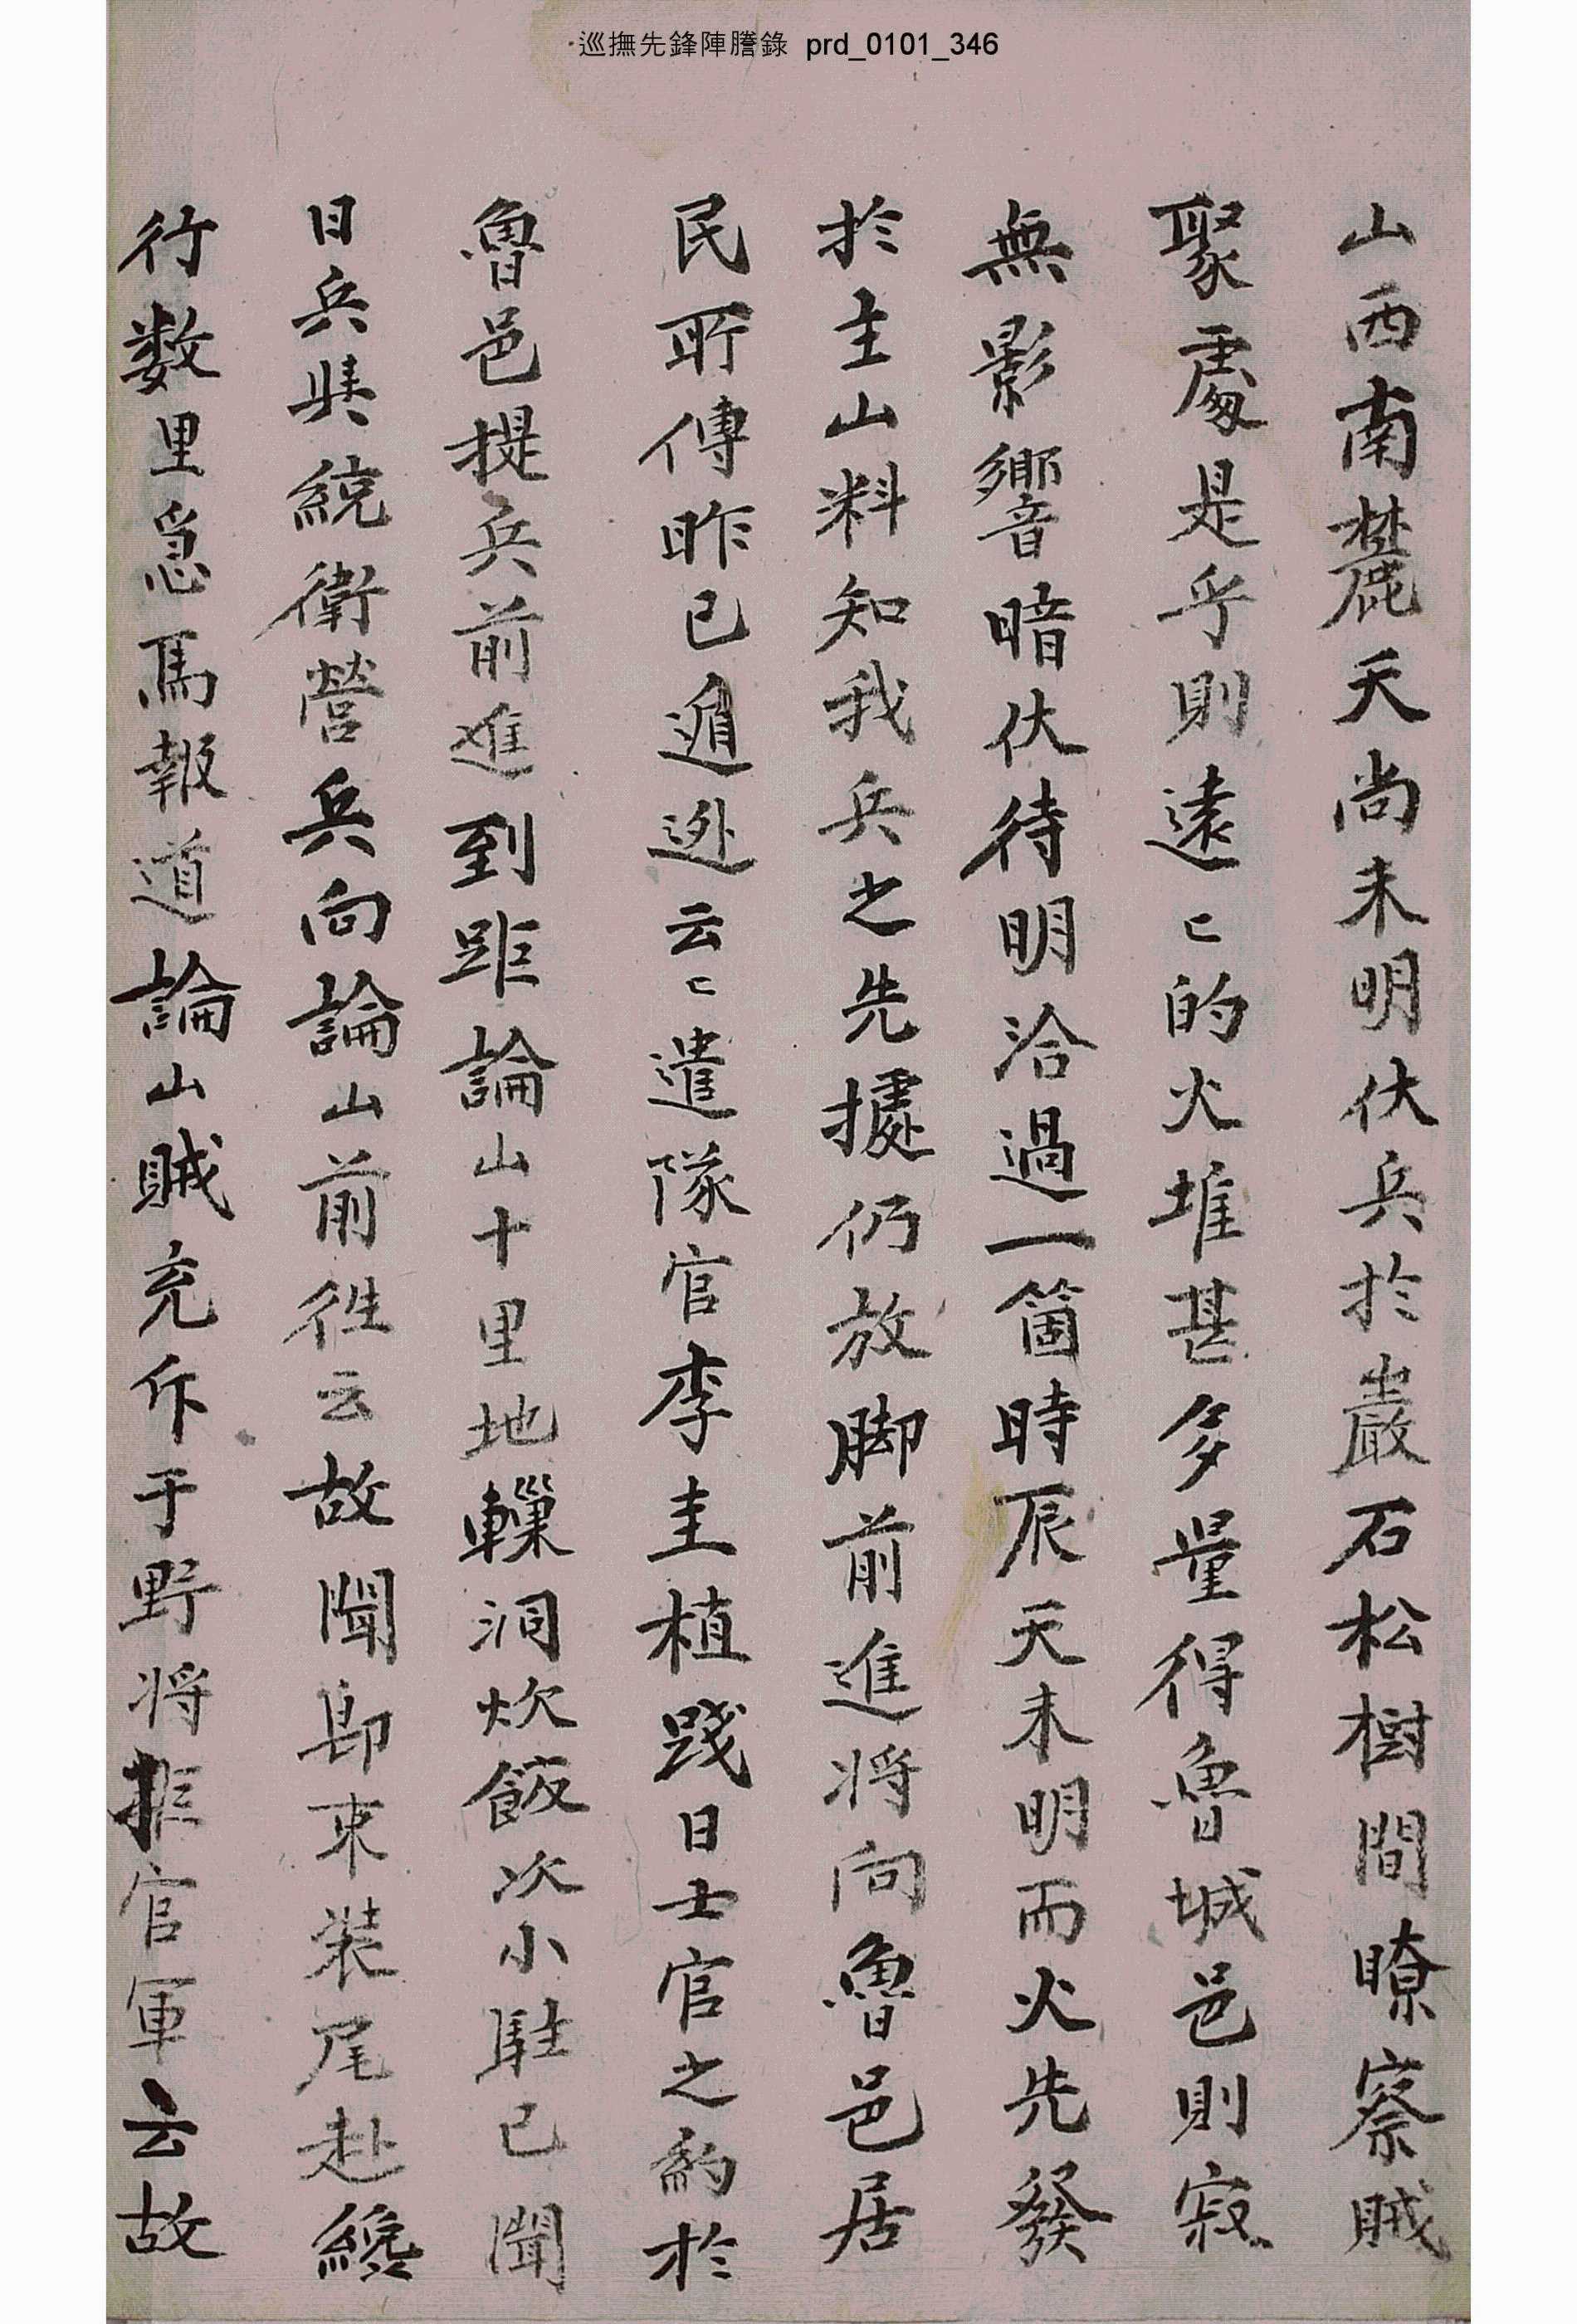 巡撫先鋒陣謄錄 prd_0101_346
山西南麓天尚未明伏兵於巖石松樹間瞭察賊
聚處是乎則遠〻的火堆甚多量得魯城邑則寂
無影響暗伏待明洽過一箇時辰天未明而火先發
於主山料知我兵之先據仍放脚前進将向魯邑居
民所傳昨已遁逊云〻遣隊官李圭植踐日士官之約於
魯邑提兵前進到距論山十里地轈洞炊飯次小駐已聞
日兵與統衛營兵向論山前徃云故聞即束装尾赴纔
行数里急馬報道論山賊充斥于野将拒官軍云故